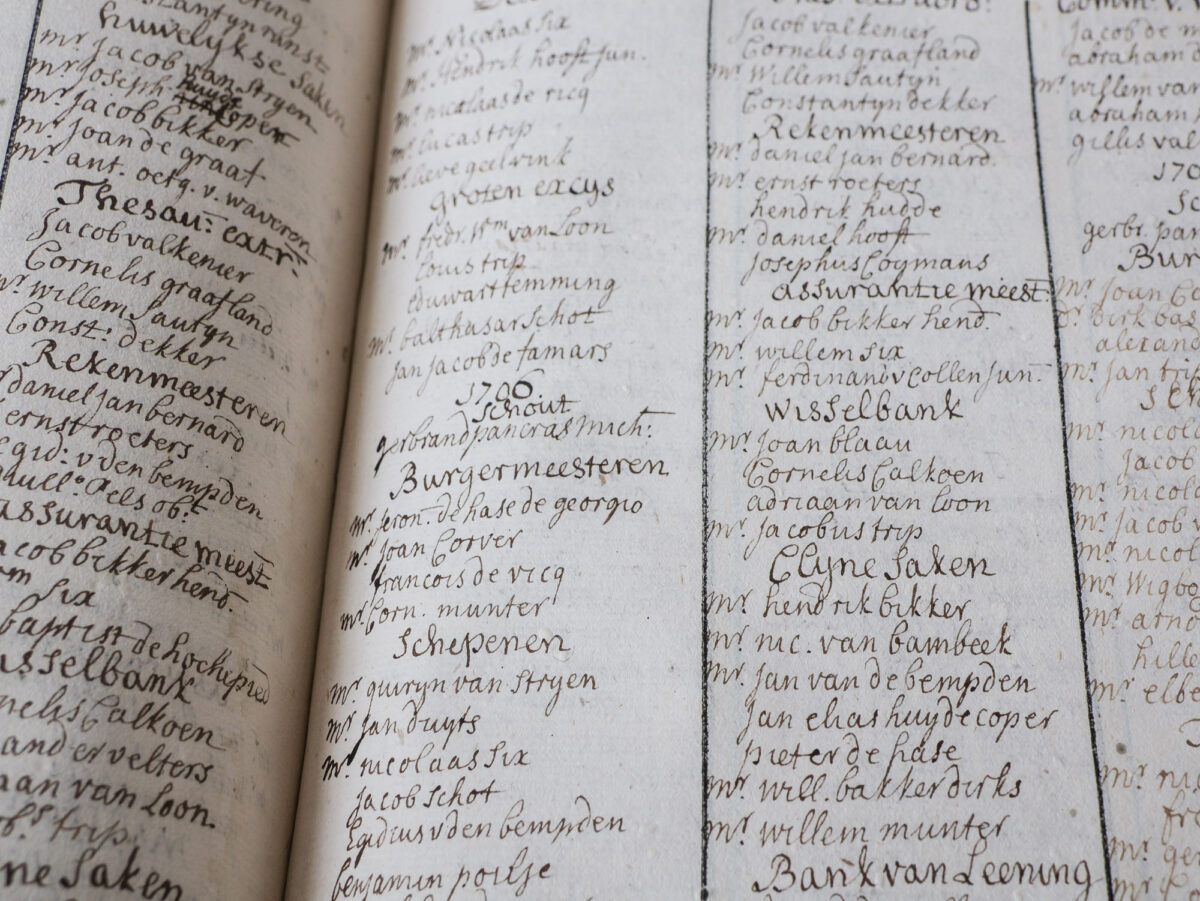 huwelykse saken
mr. Jacob van Stryen
mr. Joseph huyde Coper
mr. Jacob bikker
mr. Joan de graaf
mr. ant. oetg. v. waveren
Thesau: extr:
Jacob valkenier
Cornelis graafland
mr. willem Sautyn
Const: dekker
Rekenmeesteren
daniel jan bernard
ernst roeters
Egid: v den bempden
Pels ob:t
assurantie meest
Jacob bikker hend.
Six
baptist de hochepied
wisselbank
Cornelis Calkoen
van Loon.
trip
Saken
mr. Nicolaas Six
mr. Hendrik hooft Jun.
mr. nicolaas de vicq
mr. Lucas trip
mr. Lieve geelvink
groten excys
mr. fredr. Wm van Loon
Louis trip
Eduwart temming
mr. balthasar Schot
Jan Jacob de famars
1706
Schout
gerbrand pancras mich:
Burgermeesteren
mr. Jeron. de hase de georgio
mr. Joan Corver
francois de vicq
mr. Corn. munter
Schepenen
mr. quiryn van Stryen
mr. Jan duyts
mr. nicolaas Six
Jacob Schot
Egidius v den bempden
benjamin poulje
Jacob valkenier
Cornelis graafland
mr. Willem Sautyn
Constantyn dekker
Rekenmeesteren
mr. daniel jan bernard.
mr. ernst roeters
hendrik hudde
mr. daniel hooft
Josephus Coymans
assurantie meest:
mr. Jacob bikker hend.
mr. willem Six
mr. ferdinand v Collen Jun.
Wisselbank
mr. Joan blaau
Cornelis Calkoen
adriaan van Loon
mr. Jacobus trip
Clyne Saken
mr. hendrik bikker
mr. nic. van bambeek
mr. Jan van de bempden
Jan elias huydecoper
pieter de hase
mr. will. bakker dirks
mr. willem munter
Bank van Leening
Jacob de
abraham
mr. willem van
abraham
gillis
170
gerbr. pan
Bur
mr. Joan
Dr. dirk bas
mr. Jan trip
mr. nicol
Jacob
mr. nicol
mr. Jacob
mr. nicol
mr. Wigbo
mr. arno
hille
mr. elbe
mr. ni
fr
mr. ge
mr.